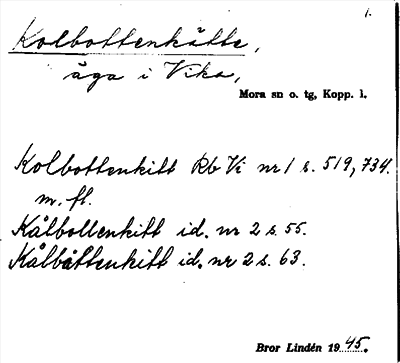 1.
Kolbottenkätte,
äga i Vika,
Mora sn o. tg, Kopp. l.
Kolbottenkitt Rb Vi nr 1 s. 519, 734.
m. fl.
Kålbollenkitt id. nr 2 s. 55.
Kålbåttenkitt id. nr 2 s. 63.
Bror Lindén 1945.